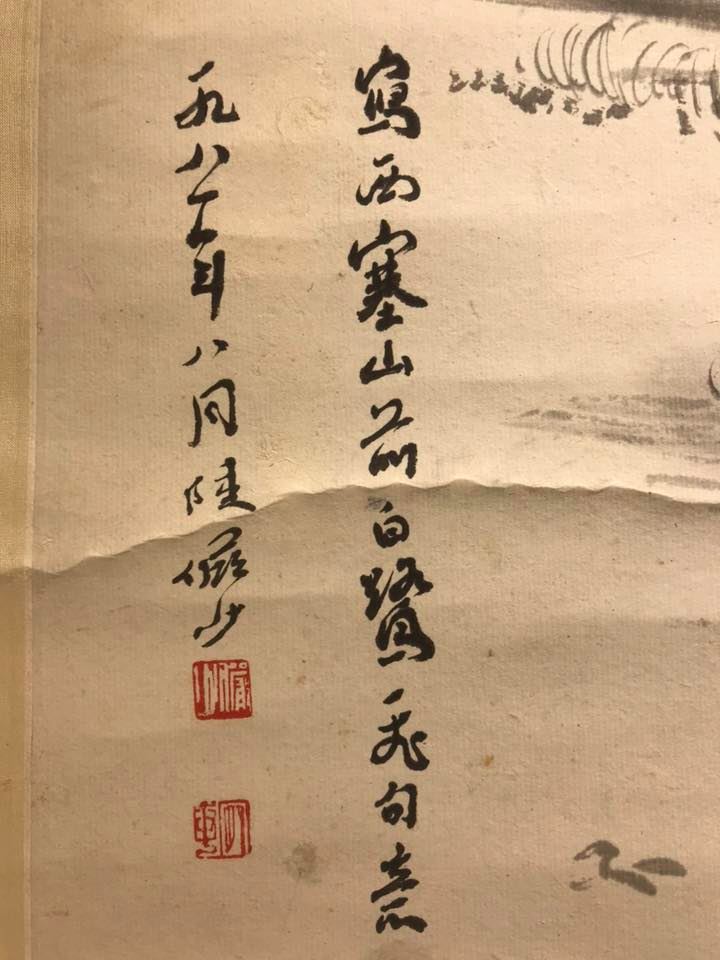 寫西塞山前白鷺飛句意
一九八一年八月陸儼少